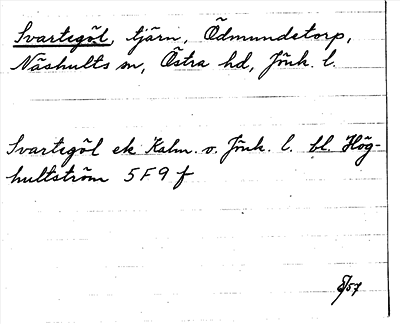 Svartegöl, tjärn, Ödmundetorp,
Näshults sn, Östra hd, Jönk. l.
Svartegöl ek Kalm. o. Jönk. l. bl. Hög-
hultström 5F9f
8/57